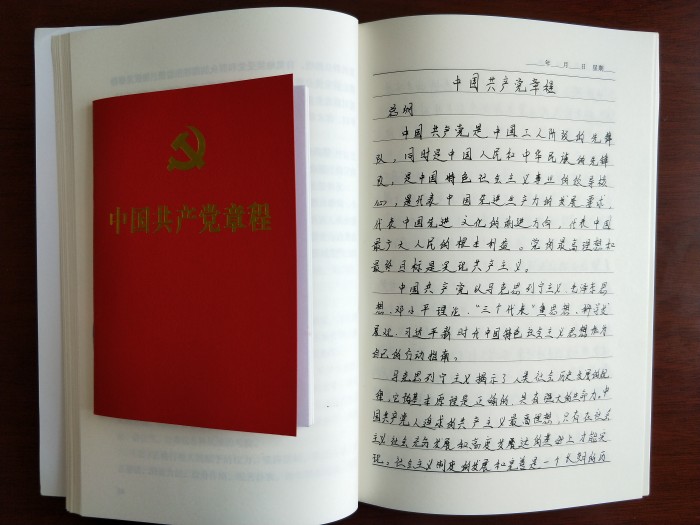 中国共产党章程
年 月 日 星期
中国共产党章程
总纲
中国共产党是中国工人阶级的先锋
队，同时是中国人民和中华民族的先锋
队，是中国特色社会主义事业的领导核
心，是代表中国先进生产力的发展要求，
代表中国先进文化的前进方向，代表中国
最广大人民的根本利益。党的最高理想和
最终目标是实现共产主义。
中国共产党以马克思列宁主义、毛泽东思
想、邓小平理论、“三个代表”重思想、科学发
展观、习近平新时代中国特色社会主义思想作为
自己的行动指南。
马克思列宁主义揭示了人类社会历史发展的规
律，它的基本原理是正确的，具有强大的生命力。中
国共产党人追求的共产主义最高理想，只有在社会
主义社会充分发展和高度发达的基础上才能实
现。社会主义制度的发展和完善是一个长期的历